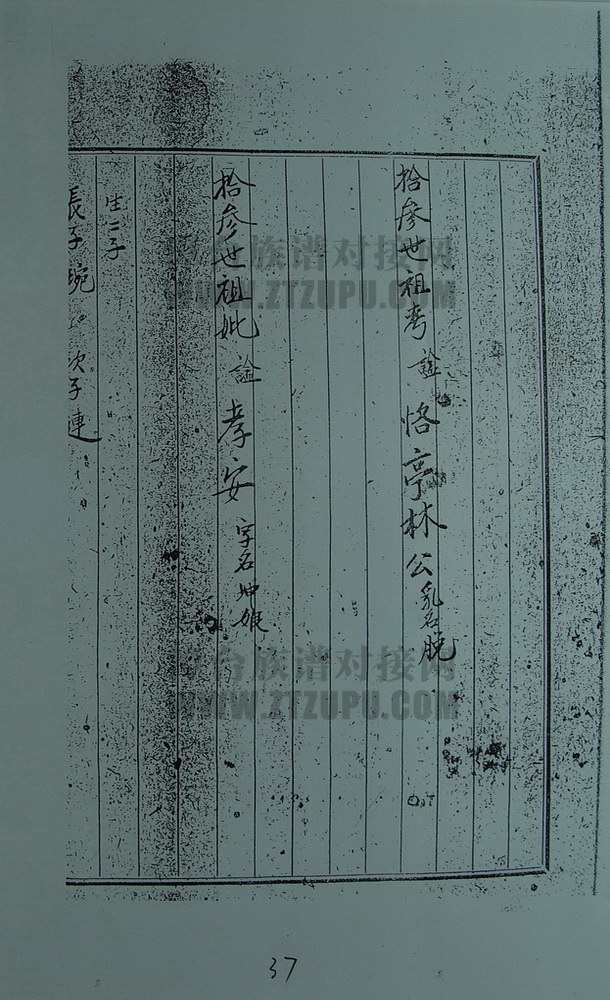 拾參世祖考 謚 恪亭林公 乳名脫
拾參世祖妣 謚 孝安 字名坤娘
生二子
長子琬 次子連
台族谱对接网
WWW.ZTZUPU.COM
台族谱对接网
WWW.ZTZUPU.COM
37